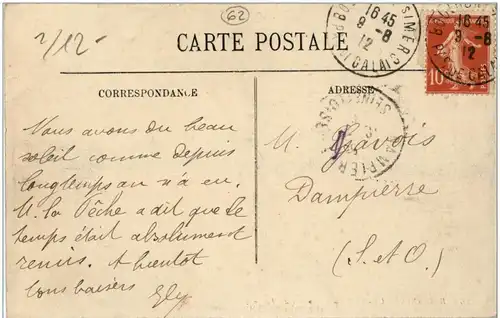 7/12-
62
CARTE POSTALE
16 45
9 -8
12
16 45
9 -8
12
10
CORRESPONDANCE
ADRESSE
Nous avons du beau
soleil comme depuis
longtemps on n'a eu.
M. la Pêche a dit que le
temps était absolument
remis. A bientôt
bons baisers
M. Gravois
Dampierre
(S. et O.)